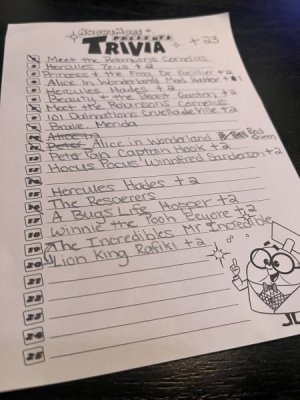 KnowsNose
PRESENTS
TRIVIA
+23
Meet the Robinsons Cornelius
Hercules Zeus +2
Princess & the Frog Dr. Facilier +2
Alice in Wonderland Mad Hatter +1
Hercules Hades +2
Beauty & the Beast Gaston +2
Meet the Robinsons Cornelius
101 Dalmations Cruella de Ville +2
Brave Merida
Alice in
Peter Alice in Wonderland Red Queen
Peter Pan Captain Hook +2
Hocus Pocus Winnifred Sanderson +2
Hercules Hades +2
The Rescuers
A Bugs Life Hopper +2
Winnie the Pooh Eeyore +2
The Incredibles Mr Incredible
Lion King Rafiki +2